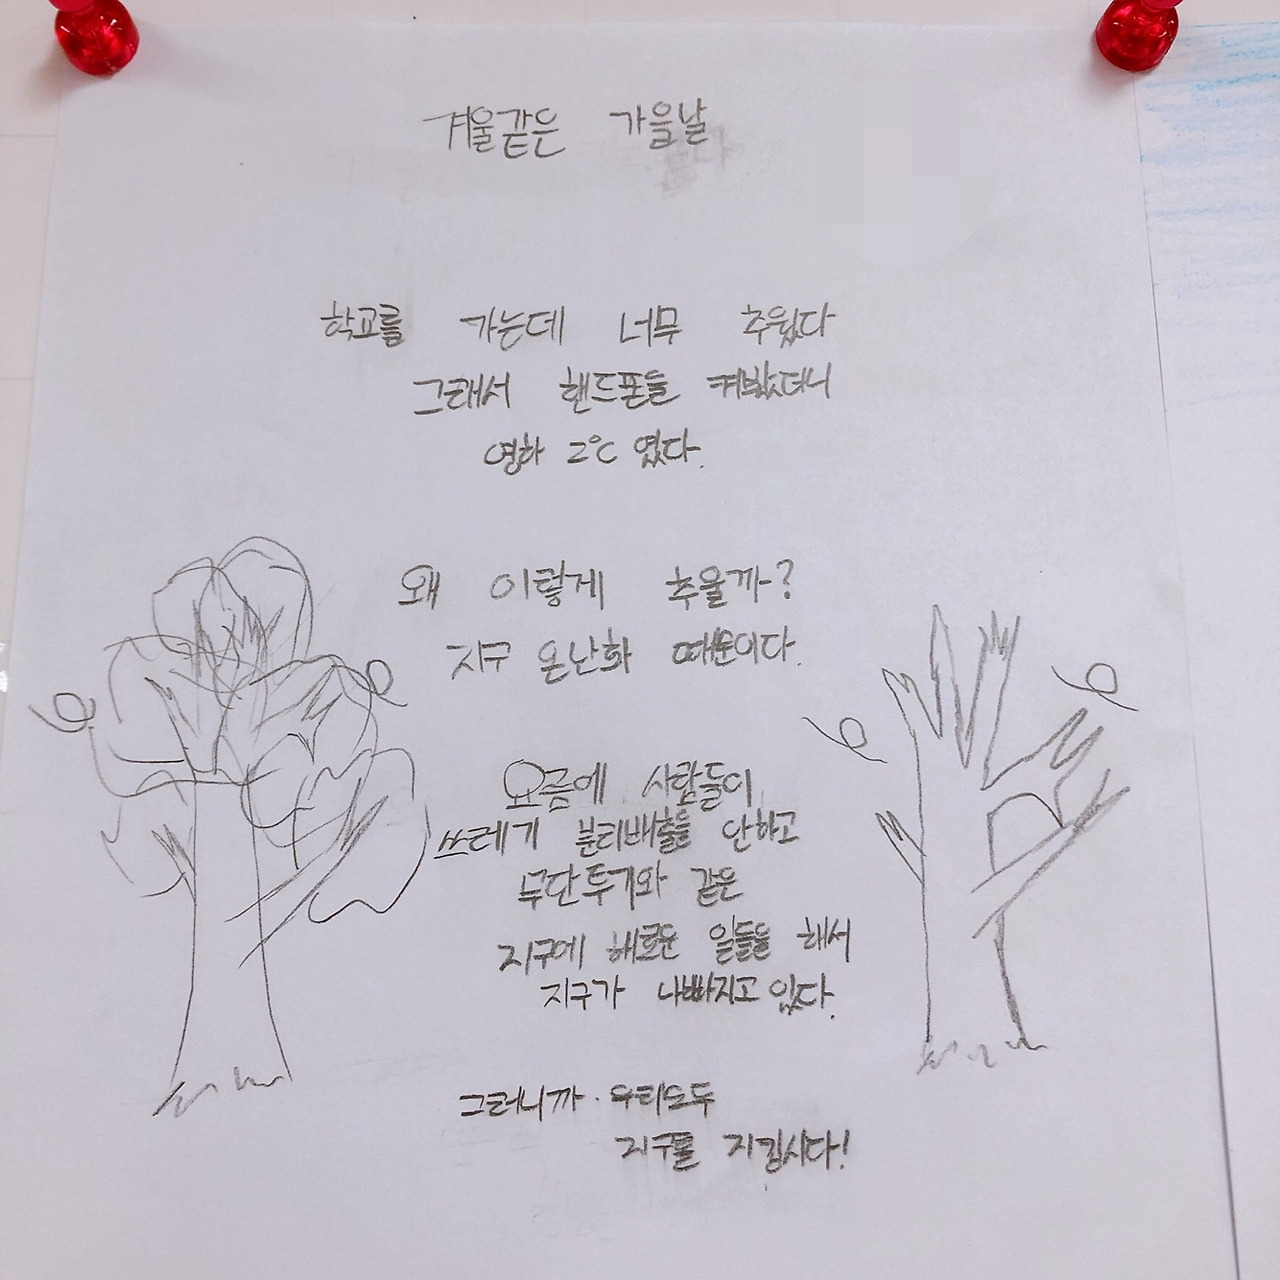 겨울같은 가을날
학교를 가는데 너무 추웠다
그래서 핸드폰을 켜봤더니
영하 2°C 였다.
왜 이렇게 추울까?
지구 온난화 때문이다.
요즘에 사람들이
쓰레기 분리배출을 안하고
무단투기와 같은
지구에 해로운 일들을 해서
지구가 나빠지고 있다.
그러니까 우리모두
지구를 지킵시다!